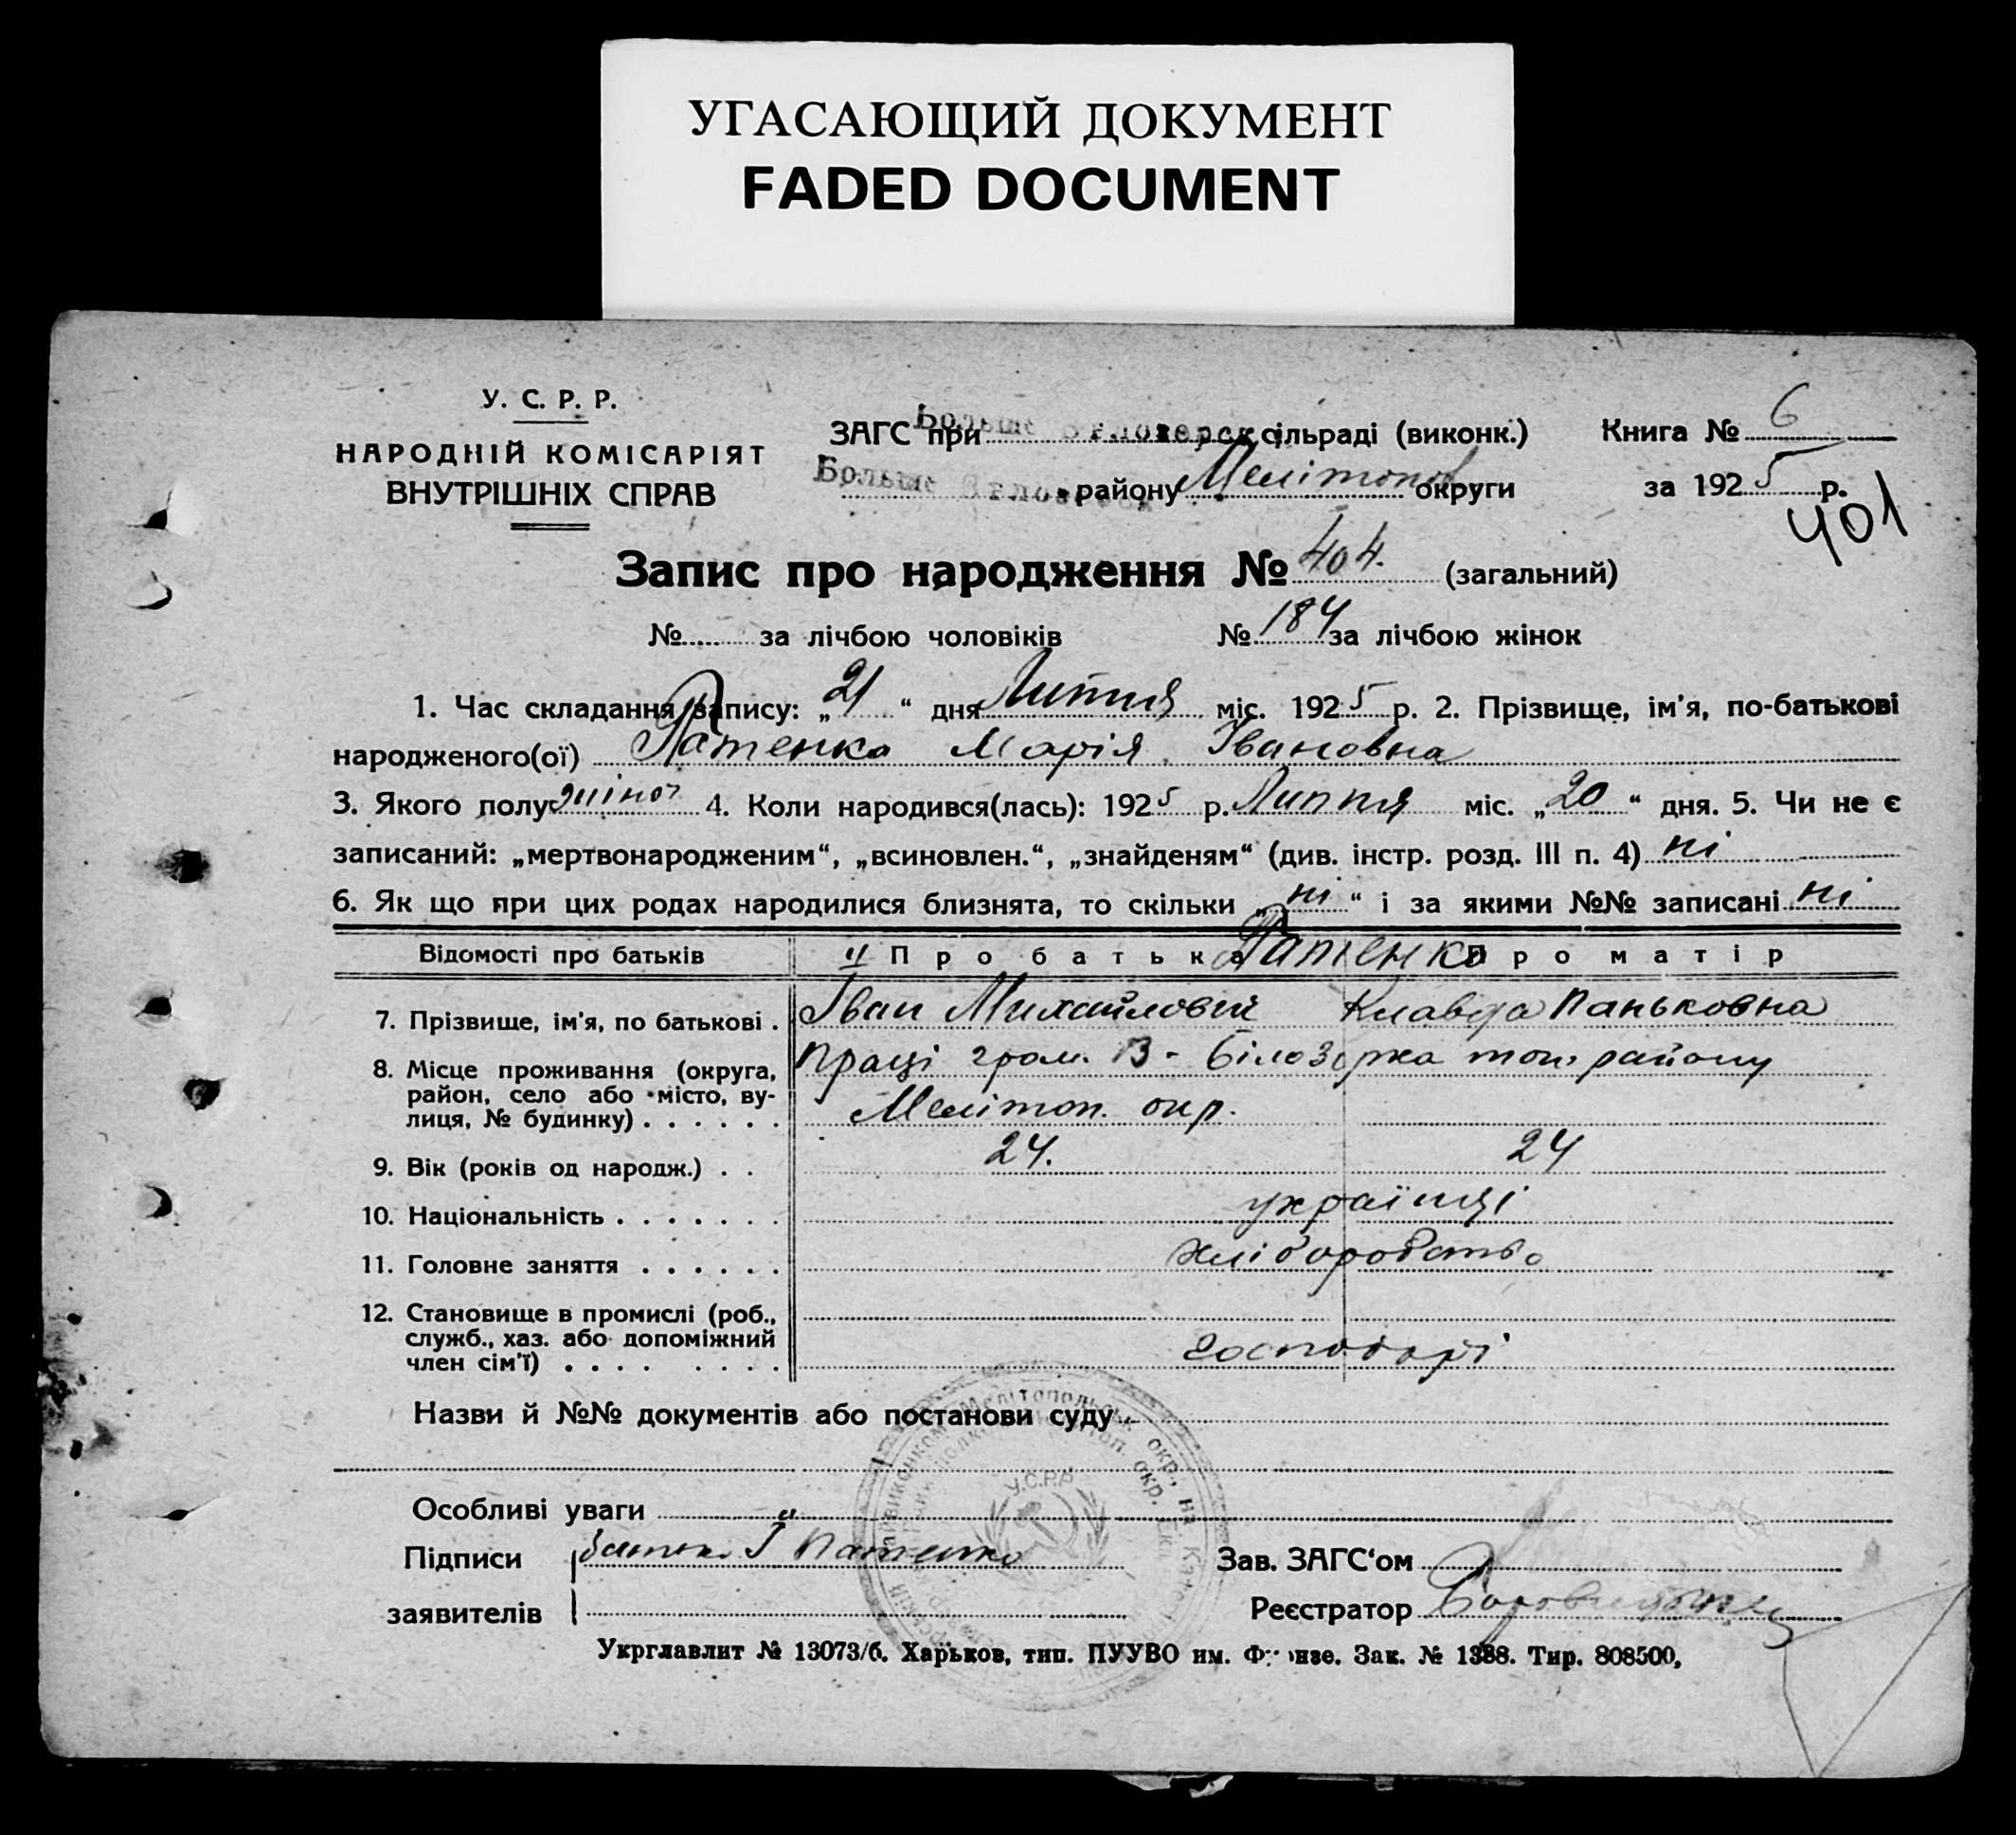 УГАСАЮЩИЙ ДОКУМЕНТ
FADED DOCUMENT
У. С. Р. Р.
НАРОДНІЙ КОМІСАРІЯТ
ВНУТРІШНІХ СПРАВ
ЗАГС при Больше Білозерск сільраді (виконк.)
Больше району Мелітоп. округи
Книга № 6
за 1925 р.
401
Запис про народження № 404. (загальний)
№ ...... за лічбою чоловіків № 184 за лічбою жінок
1. Час складання запису: „21“ дня Липня міс. 1925 р. 2. Прізвище, ім'я, по-батькові
народженого(ої) Патенко Марія Івановна
3. Якого полу жіноч 4. Коли народився(лась): 1925 р. Липня міс. „20“ дня. 5. Чи не є
записаний: „мертвонародженим“, „всиновлен.“, „знайденям“ (див. інстр. розд. III п. 4) ні
6. Як що при цих родах народилися близнята, то скільки „ні“ і за якими №№ записані ні
Відомості про батьків Про батька Патенко Про матір
7. Прізвище, ім'я, по батькові . Іван Михайлович Клавда Паньковна
8. Місце проживання (округа, Праці гром. В-Білозерка тог. району
район, село або місто, ву- Мелітоп. окр.
лиця, № будинку) . . . . . .
9. Вік (років од народж.) . . 24. 24
10. Національність . . . . . . . українці
11. Головне заняття . . . . . . хліборобство
12. Становище в промислі (роб.,
служб., хаз. або допоміжний господарі
член сім'ї) . . . . . . . .
Назви й №№ документів або постанови суду
Особливі уваги
У.С.Р.Р.
Підписи батько І Патенко Зав. ЗАГС'ом
заявителів Реєстратор
Укрглавлит № 13073/б. Харьков, тип. ПУУВО им. Фрунзе. Зак. № 1388. Тир. 808500,